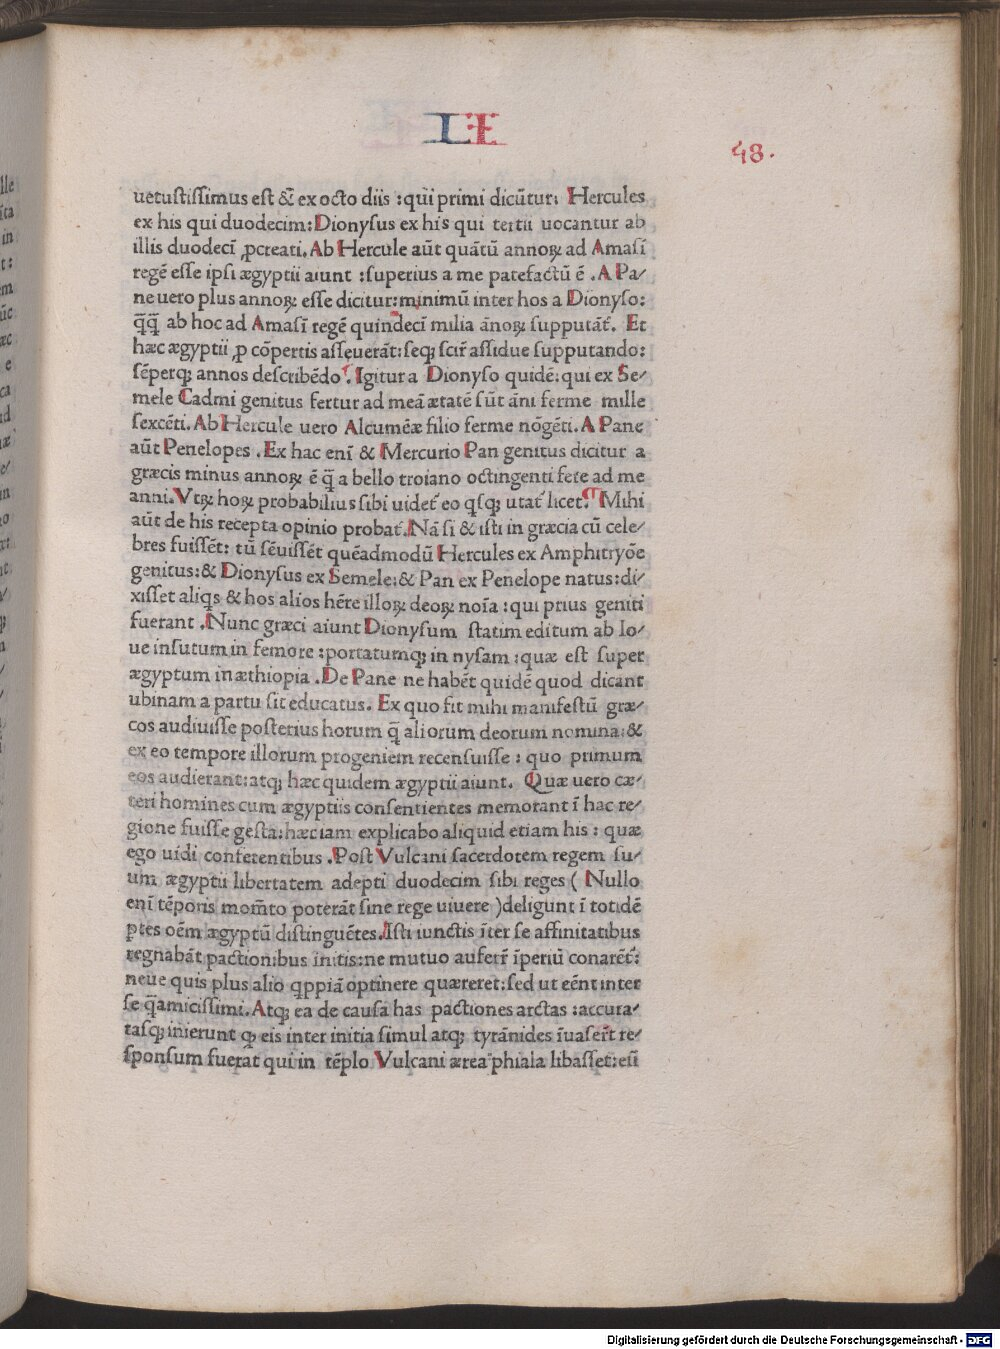 LI
48.
uetustissimus est & ex octo diis : qui primi dicūtur: Hercules
ex his qui duodecim: Dionysus ex his qui tertii uocantur ab
illis duodecī ꝓcreati. Ab Hercule aūt quātū annoꝝ ad Amasī
regē esse ipsi ægyptii aiunt : superius a me patefactū ē . A Pa⸗
ne uero plus annoꝝ esse dicitur: minimū inter hos a Dionyso:
q̄q̄ ab hoc ad Amasī regē quindecī milia ānoꝝ supputāt᷑. Et
hæc ægyptii ꝓ cōpertis asseuerāt: seqꝫ scir̄ assidue supputando:
sēperqꝫ annos describēdo. Igitur a Dionyso quidē: qui ex Se⸗
mele Cadmi genitus fertur ad meā ætatē sūt āni ferme mille
sexcēti. Ab Hercule uero Alcumēæ filio ferme nōgēti. A Pane
aūt Penelopes . Ex hac enī & Mercurio Pan genitus dicitur a
græcis minus annoꝝ ē q̄ a bello troiano octingenti fere ad me
anni. Vtꝝ hoꝝ probabilius sibi uidet᷑ eo qsqꝫ utat᷑ licet. Mihi
aūt de his recepta opinio probat᷑. Nā si & isti in græcia cū cele⸗
bres fuissēt: tū sēuissēt quēadmodū Hercules ex Amphitryōe
genitus: & Dionysus ex Semele: & Pan ex Penelope natus: di⸗
xisset aliqs & hos alios hēre illoꝝ deoꝝ noīa : qui prius geniti
fuerant . Nunc græci aiunt Dionysum statim editum ab Io⸗
ue insutum in femore : portatumqꝫ in nysam : quæ est super
ægyptum in æthiopia . De Pane ne habēt quidē quod dicant
ubinam a partu sit educatus. Ex quo fit mihi manifestū græ⸗
cos audiuisse posterius horum q̄ aliorum deorum nomina: &
ex eo tempore illorum progeniem recensuisse : quo primum
eos audierant: atqꝫ hæc quidem ægyptii aiunt. Quæ uero cæ⸗
teri homines cum ægyptiis consentientes memorant ī hac re⸗
gione fuisse gesta: hæc iam explicabo aliquid etiam his : quæ
ego uidi conferentibus . Post Vulcani sacerdotem regem su⸗
um ægyptii libertatem adepti duodecim sibi reges ( Nullo
enī tēporis momēto poterāt sine rege uiuere ) deligunt ī totidē
ꝑtes oēm ægyptū distinguētes. Isti iunctis īter se affinitatibus
regnabāt pactionibus initis: ne mutuo auferr̄ īperiū conarēt᷑:
neue quis plus alio qppiā optinere quæreret: sed ut eēnt inter
se q̄amicissimi. Atqꝫ ea de causa has pactiones arctas : accura⸗
tasqꝫ inierunt qꝫ eis inter initia simul atqꝫ tyrānides īuaser̄t re⸗
sponsum fuerat qui in tēplo Vulcani ærea phiala libasset: eū
Digitalisierung gefördert durch die Deutsche Forschungsgemeinschaft - DFG